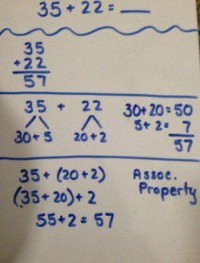 35 + 22 = __
35
+22
57
35 + 22
30+5 20+2
30+20=50
5+2= 7
57
35 + (20+2) Assoc.
(35+20)+2 Property
55+2= 57